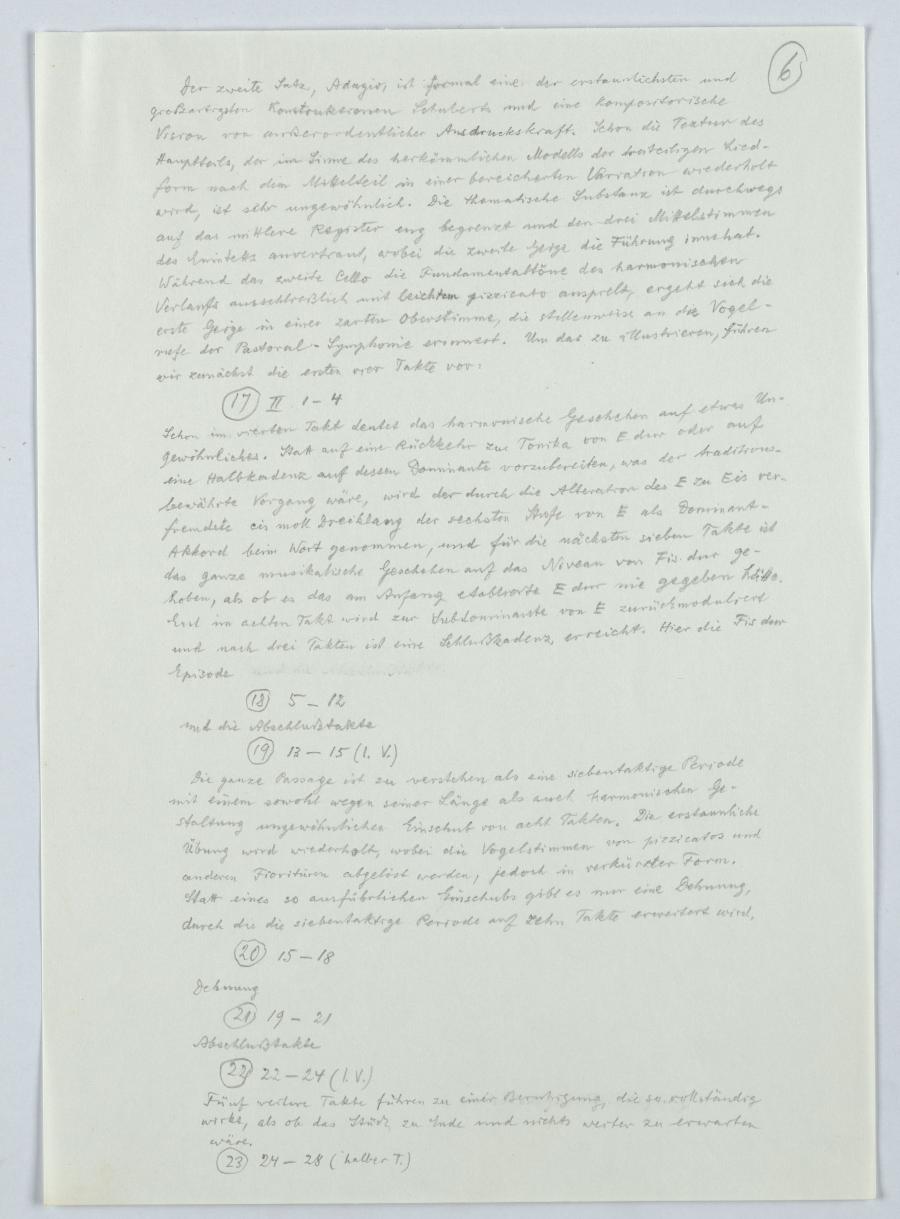 6
Der zweite Satz, Adagio, ist formal eine der erstaunlichsten und
großartigsten Konstruktionen Schuberts und eine kompositorische
Vision von außerordentlicher Ausdruckskraft. Schon die Textur des
Hauptteils, der im Sinne des herkömmlichen Modells der dreiteiligen Lied-
form nach dem Mittelteil in einer bereicherten Variation wiederholt
wird, ist sehr ungewöhnlich. Die thematische Substanz ist durchwegs
auf das mittlere Register eng begrenzt und den drei Mittelstimmen
des Quintetts anvertraut, wobei die zweite Geige die Führung innehat.
Während das zweite Cello die Fundamentaltöne des harmonischen
Verlaufs ausschließlich mit leichtem pizzicato anspielt, ergeht sich die
erste Geige in einer zarten Oberstimme, die stellenweise an die Vogel-
rufe der Pastoral-Symphonie erinnert. Um das zu illustrieren, führen
wir zunächst die ersten vier Takte vor:
17 II 1–4
Schon im vierten Takt deutet das harmonische Geschehen auf etwas Un-
gewöhnliches. Statt auf eine Rückkehr zur Tonika von E dur oder auf
eine Halbkadenz auf dessen Dominante vorzubereiten, was der traditions-
bewährte Vorgang wäre, wird der durch die Alteration des E zu Eis ver-
fremdete cis moll Dreiklang der sechsten Stufe von E als Dominant-
Akkord beim Wort genommen, und für die nächsten sieben Takte ist
das ganze musikalische Geschehen auf das Niveau von Fis dur ge-
hoben, als ob es das am Anfang etablierte E dur nie gegeben hätte.
Erst im achten Takt wird zur Subdominante von E zurückmoduliert
und nach drei Takten ist eine Schlußkadenz erreicht. Hier die Fis dur
Episode
18 5–12
und die Abschlußtakte
19 13–15 (1. V.)
Die ganze Passage ist zu verstehen als eine siebentaktige Periode
mit einem sowohl wegen seiner Länge als auch harmonischen Ge-
staltung ungewöhnlichen Einschub von acht Takten. Die erstaunliche
Übung wird wiederholt, wobei die Vogelstimmen von pizzicatos und
anderen Fiorituren abgelöst werden, jedoch in verkürzter Form.
Statt eines so ausführlichen Einschubs gibt es nur eine Dehnung,
durch die die siebentaktige Periode auf zehn Takte erweitert wird.
20 15–18
Dehnung
21 19–21
Abschlußtakte
22 22–24 (1. V.)
Fünf weitere Takte führen zu einer Beruhigung, die so vollständig
wirkt, als ob das Stück zu Ende und nichts weiter zu erwarten
wäre.
23 24–28 (halber T.)